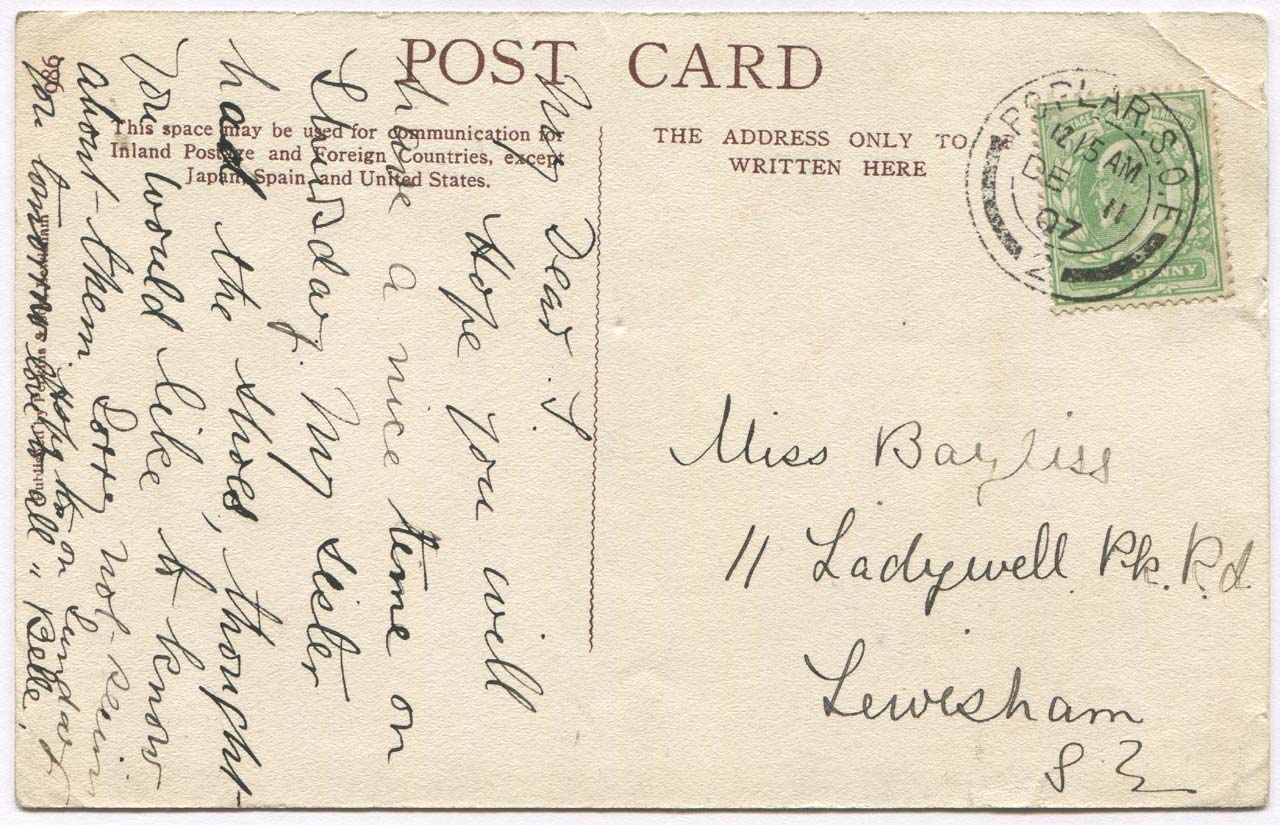 POST CARD
This space may be used for communication for
Inland Postage and Foreign Countries, except
Japan, Spain, and United States.
THE ADDRESS ONLY TO BE
WRITTEN HERE
POPLAR. S.O.E
12.15 AM
DE 11
07
2
PENNY
Miss Bayliss
11 Ladywell Pk. Rd
Lewisham
S E
My Dear L.
Hope you will
have a nice time on
Thursday. My sister
had the shoes, thought
You would like to know
about them. Sorry not seein
you tomorrow love to all " Belle.
Hope to on Sunday
986